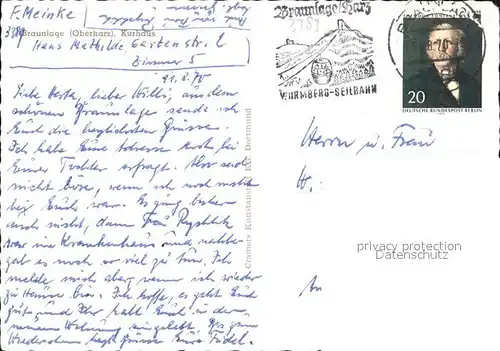 P. Meinke
33
Braunlage (Oberharz), Kurhaus
Haus Mathilde, Gartenstr. 2
Zimmer 5
11.8.70
Liebe Herta, lieber Willi, aus dem
schönen Braunlage sende ich
Euch die herzlichsten Grüsse.
Ich habe Eure Adresse noch bei
Eurer Tochter erfragt. Aber seid
nicht böse, wenn ich noch nicht
bei Euch war. Es ging bisher
noch nicht, denn Frau
war im Krankenhaus und
gab es noch so viel zu tun. Ich
melde mich aber, wenn ich wieder
zu Hause bin. Ich hoffe, es geht Euch
gut und Ihr habt Euch in der
neuen Wohnung eingelebt. Bis zum
Wiedersehen Grüsse Eure
Cramers Kunstanstalt KG, Dortmund
Braunlage/Harz
WURMBERG-SEILBAHN
20
DEUTSCHE BUNDESPOST BERLIN
Herrn u. Frau
W.
An
privacy protection
Datenschutz